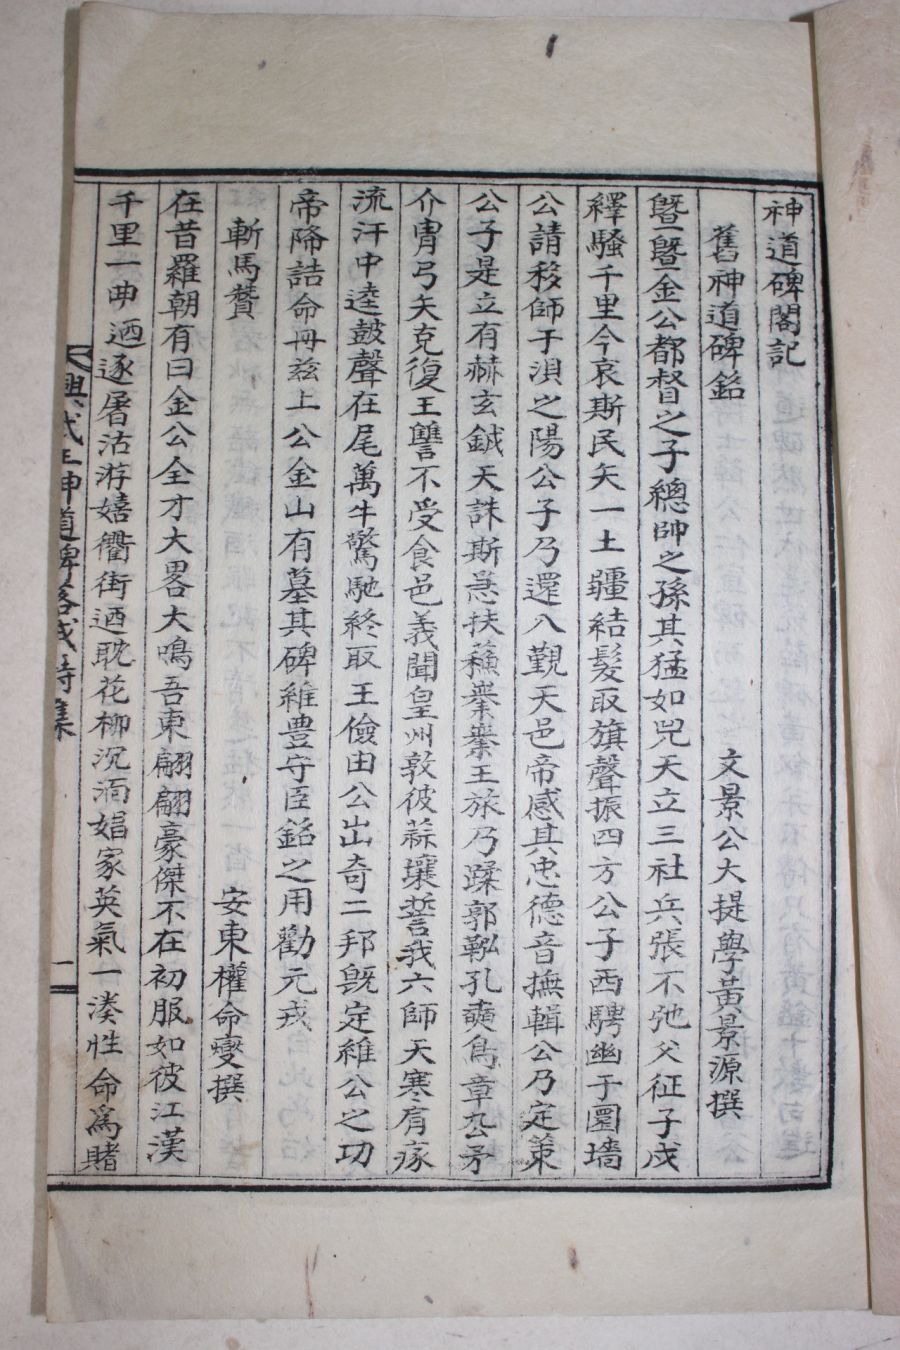 神道碑閣記
舊神道碑銘 文景公大提學黃景源撰
曁曁金公都督之子總帥之孫其猛如兕天立三社兵張不弛父征子戍
繹騷千里今哀斯民矢一土疆結髮取旗聲振四方公子西騁幽于圜墻
公請移師于浿之陽公子乃還入覲天邑帝感其忠德音撫輯公乃定策
公子是立有赫玄鉞天誅斯急扶蘓桀桀王旅乃蹂郭鞃孔奭鳥章厹矛
介冑弓矢克復王讐不受食邑義聞皇州敦彼蒜壤誓我六師天寒肩瘃
流汗中逵鼓聲在尾萬牛驚馳終取王儉田公出奇二邦旣定維公之功
帝降誥命冊玆上公金山有墓其碑維豊守臣銘之用勸元戎
斬馬贊 安東權命燮撰
在昔羅朝有曰金公全才大畧大鳴吾東翩翩豪傑不在初服如彼江漢
千里一曲迺逐屠沽游嬉衢街迺耽花柳沉湎娼家英氣一湊性命爲賭
興武王神道碑落成詩集 一